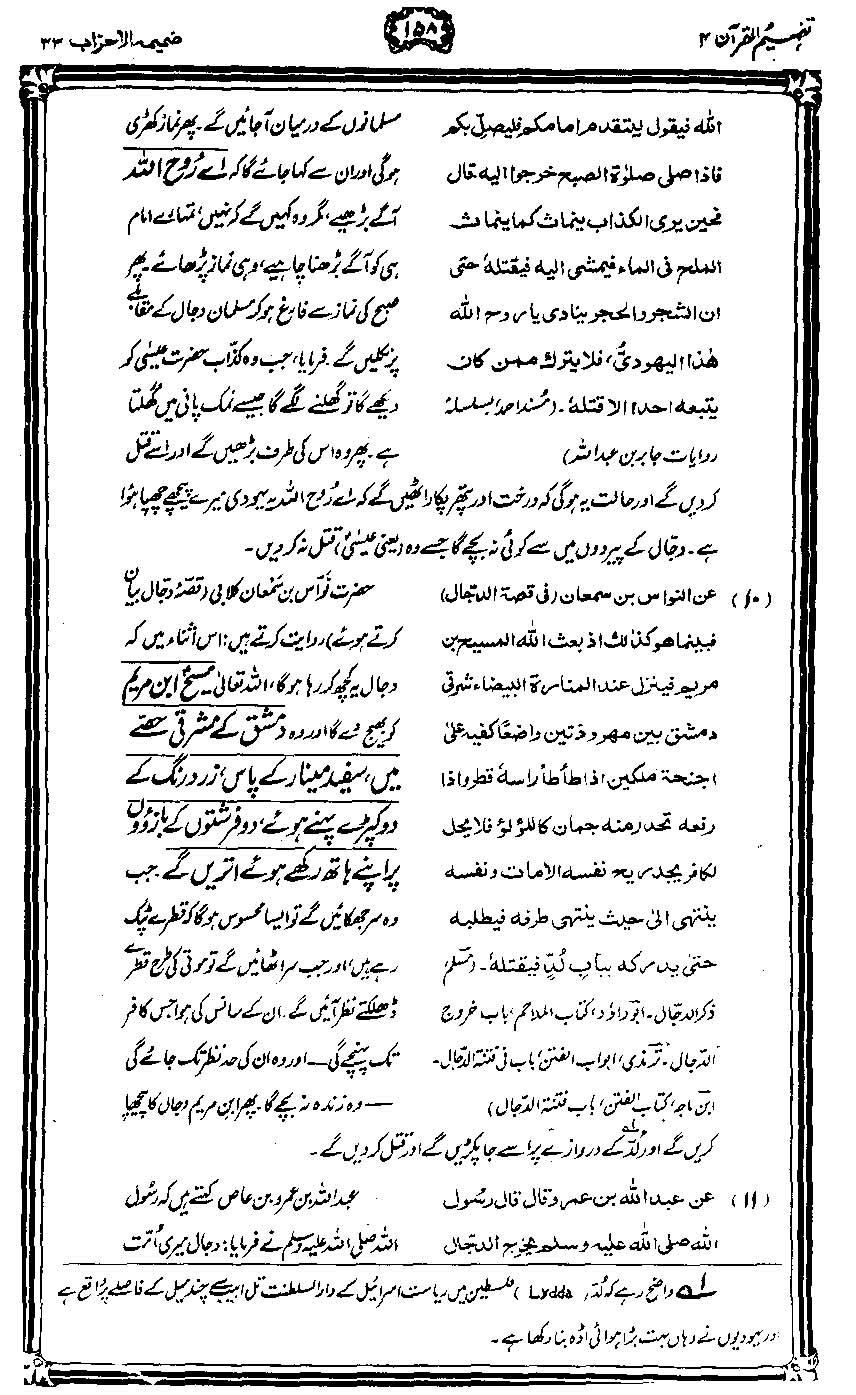 تفہیم القرآن ۴
۱۵۸
ضمیمہ الاحزاب ۳۳
الله فيقول ليتقدم امامكم فليصل بكم
فاذا صلى صلوٰة الصبح خرجوا اليه قال
فحين يرى الكذاب ينماث كما ينماث
الملح فى الماء فيمشى اليه فيقتلهٗ حتى
ان الشجر والحجر ينادى يا روح الله
هٰذا اليهودىُّ، فلا يترك ممن كان
يتبعه احدا الا قتلهٗ۔ (مُسند احمد، بسلسلۂ
روایات جابر بن عبد اللہ)
مسلمانوں کے درمیان آجائیں گے۔ پھر نماز کھڑی
ہوگی اور ان سے کہا جائے گا کہ اے رُوح اللہ
آگے بڑھیے، مگر وہ کہیں گے کہ نہیں، تمہارے امام
ہی کو آگے بڑھنا چاہیے، وہی نماز پڑھائے۔ پھر
صبح کی نماز سے فارغ ہو کر مسلمان دجال کے مقابلے
پر نکلیں گے۔ فرمایا، جب وہ کذّاب حضرت عیسیٰ کو
دیکھے گا تو گھلنے لگے گا جیسے نمک پانی میں گھلتا
ہے۔ پھر وہ اس کی طرف بڑھیں گے اور اسے قتل
کر دیں گے اور حالت یہ ہوگی کہ درخت اور پتھر پکار اٹھیں گے کہ اے رُوح اللہ یہ یہودی میرے پیچھے چھپا ہوا
ہے۔ دجّال کے پیروؤں میں سے کوئی نہ بچے گا جسے وہ (یعنی عیسیٰ) قتل نہ کر دیں۔
(۱۰) عن النواس بن سمعان (فى قصة الدجال)
فبينما هو كذٰلك اذ بعث الله المسيح بن
مريم فينزل عند المنارة البيضاء شرقى
دمشق بين مهروذتين واضعًا كفيه على
اجنحة ملكين اذا طأطأ راسهٗ قطر واذا
رفعه تحدر منه جمان كاللؤلؤ فلا يحل
لكافر يجد ريح نفسه الا مات ونفسه
ينتهى الىٰ حيث ينتهى طرفه فيطلبه
حتى يدركه بباب لُدٍّ فيقتلهٗ۔ (مسلم،
ذکر الدجّال۔ ابوداؤد، کتاب الملاحم، باب خروج
الدّجال۔ ترمذی، ابواب الفتن، باب فی فتنۃ الدّجال۔
ابن ماجہ، کتاب الفتن، باب فتنۃ الدّجال)
حضرت نوّاس بن سَمْعان کلابی (قصّۂ دجّال بیان
کرتے ہوئے) روایت کرتے ہیں: اس اثناء میں کہ
دجّال یہ کچھ کر رہا ہوگا، اللہ تعالیٰ مسیحؑ ابن مریم
کو بھیج دے گا اور وہ دمشق کے مشرقی حصّے
میں، سفید مینار کے پاس، زرد رنگ کے
دو کپڑے پہنے ہوئے، دو فرشتوں کے بازوؤں
پر اپنے ہاتھ رکھے ہوئے اتریں گے۔ جب
وہ سر جھکائیں گے تو ایسا محسوس ہوگا کہ قطرے ٹپک
رہے ہیں، اور جب سر اٹھائیں گے تو موتی کی طرح قطرے
ڈھلکتے نظر آئیں گے۔ ان کے سانس کی ہوا جس کافر
تک پہنچے گی ـــ اور وہ ان کی حد نظر تک جائے گی
ـــ وہ زندہ نہ بچے گا۔ پھر ابن مریم دجال کا پیچھا
کریں گے اور لُدّ ۱؎ کے دروازے پر اسے جا پکڑیں گے اور قتل کر دیں گے۔
(۱۱) عن عبد الله بن عمرو قال قال رسول
الله صلى الله عليه وسلم يخرج الدجّال
عبداللہ بن عمرو بن عاص کہتے ہیں کہ رسُول
اللہ صلی اللہ علیہ وسلم نے فرمایا: دجال میری اُمّت
۱؎ واضح رہے کہ لُدّ، (Lydda) فلسطین میں ریاست اسرائیل کے دار السلطنت تل ابیب سے چند میل کے فاصلے پر واقع ہے
اور یہودیوں نے وہاں بہت بڑا ہوائی اڈہ بنا رکھا ہے۔